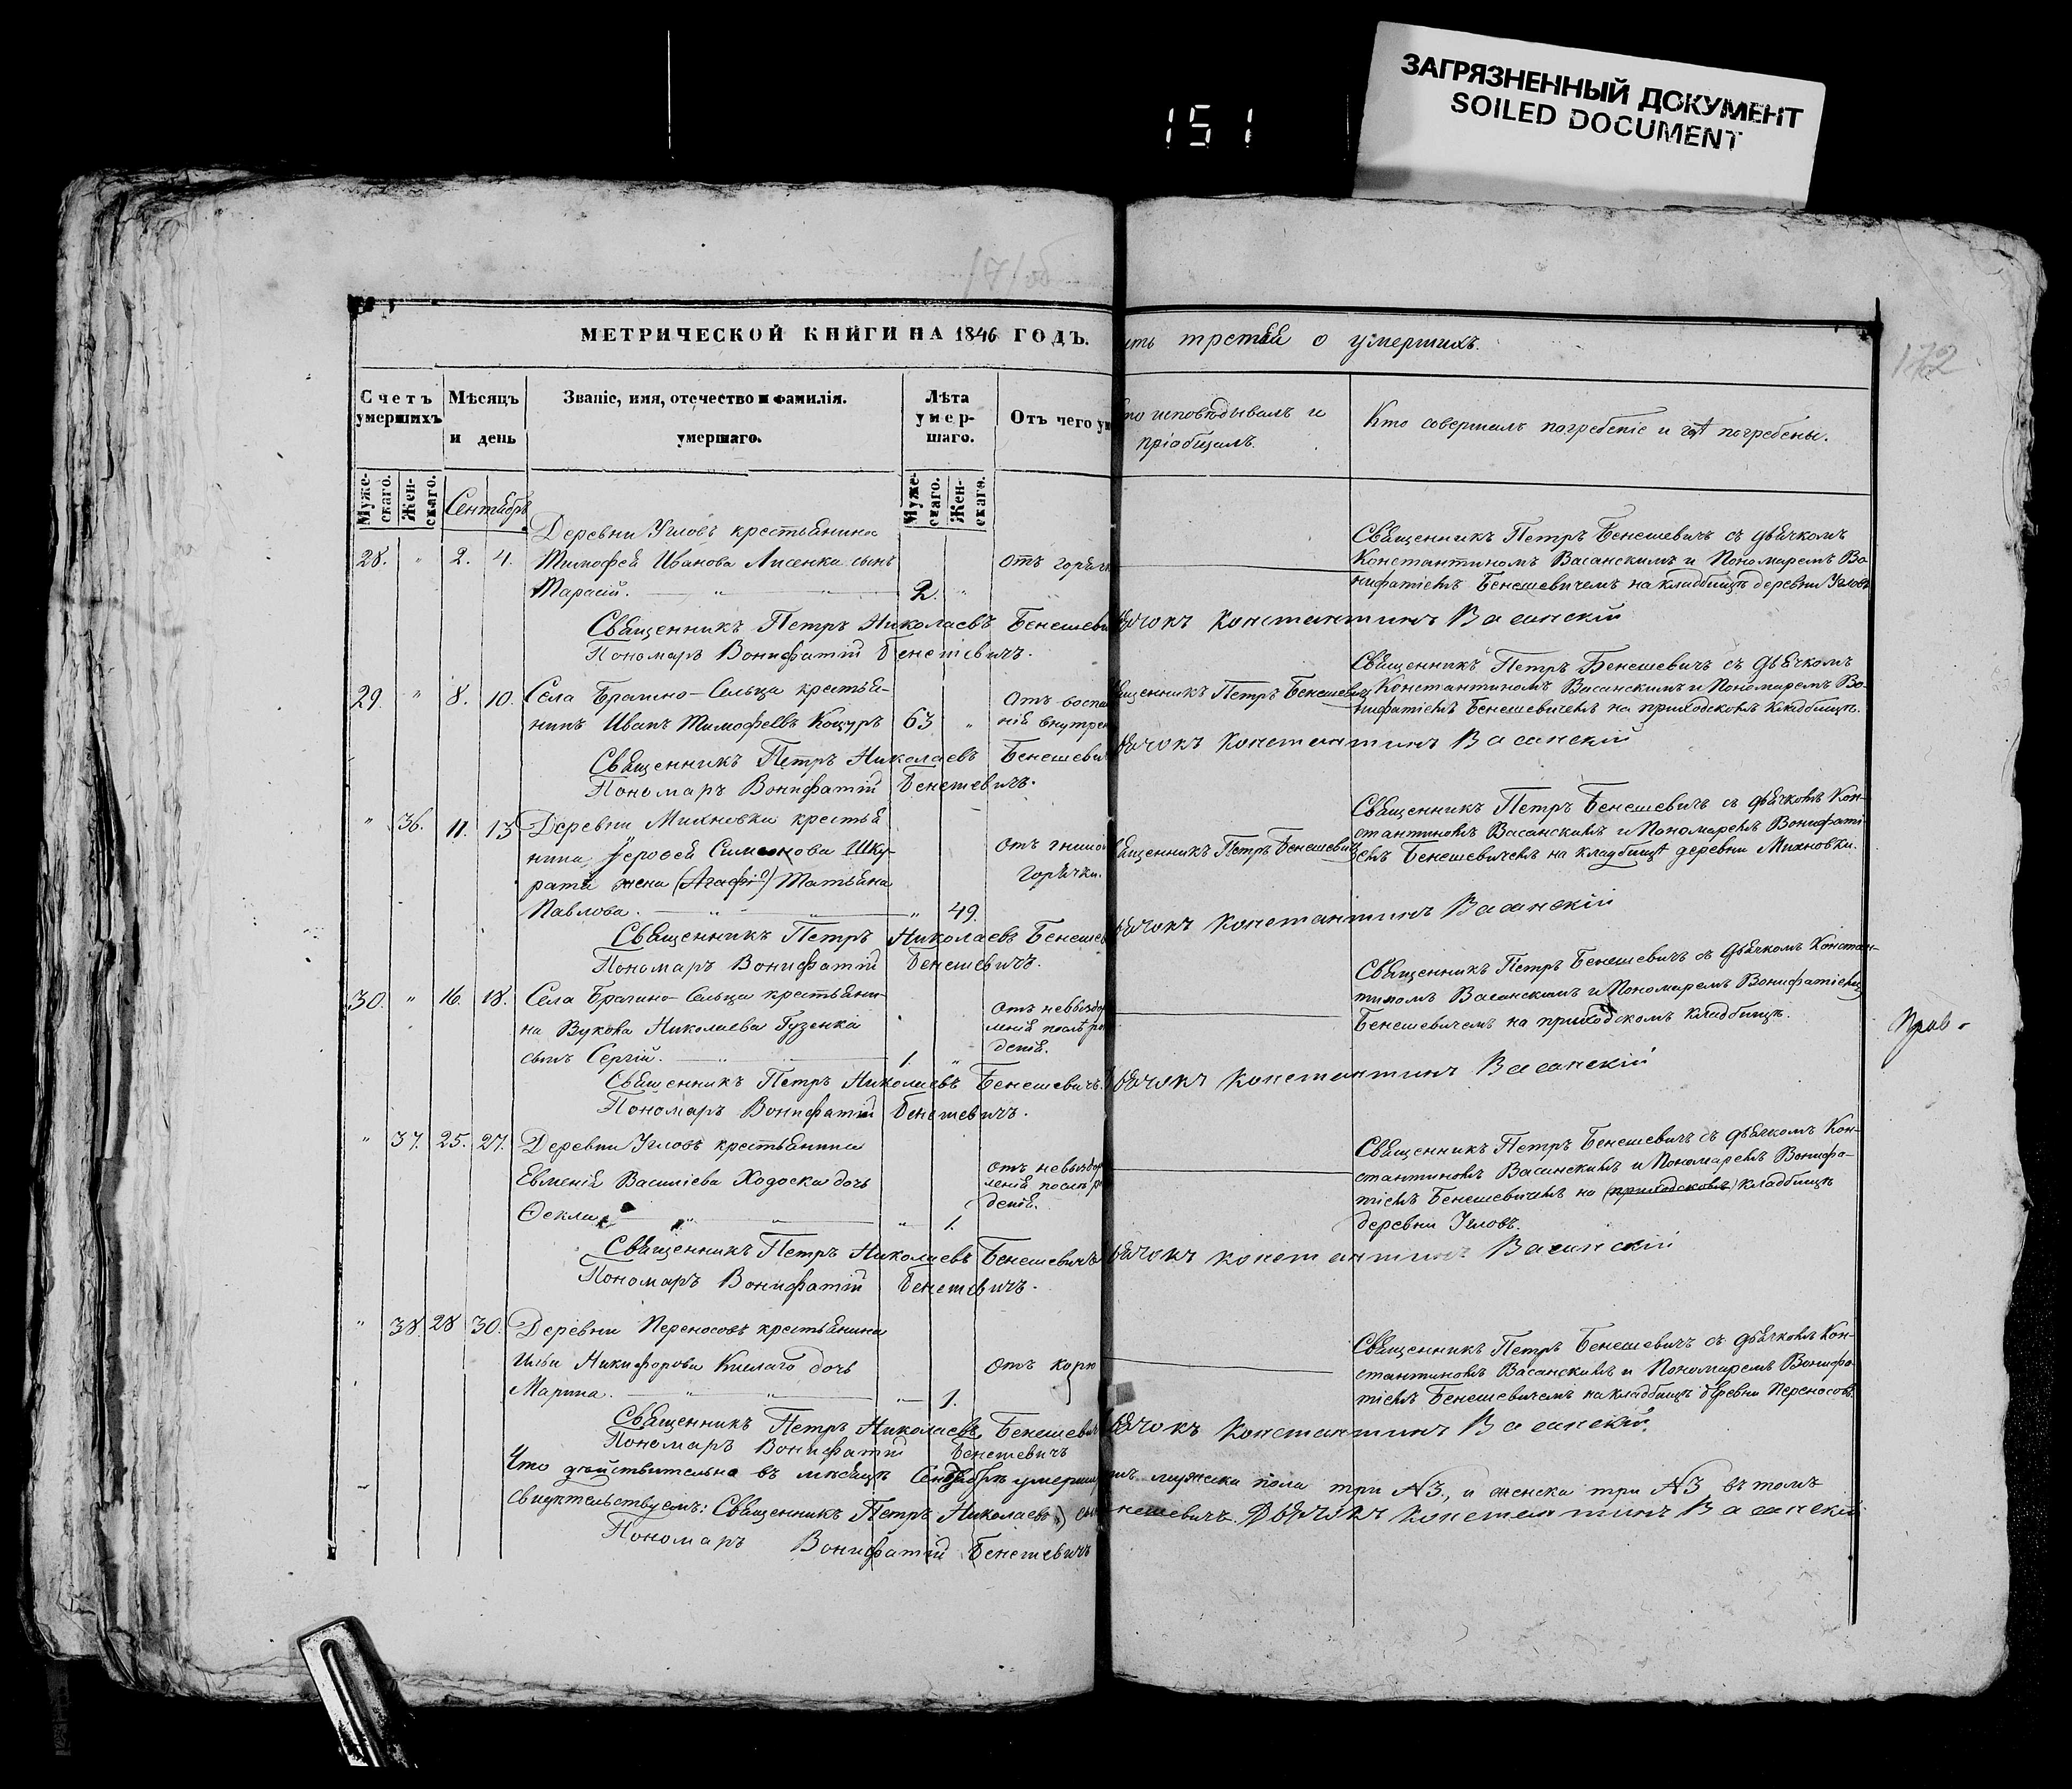 ЗАГРЯЗНЕННЫЙ ДОКУМЕНТ
SOILED DOCUMENT
151
171об
172
МЕТРИЧЕСКОЙ КНИГИ НА 1846 ГОДЪ.
сть третья о умершихъ.
Счетъ умершихъ
Мѣсяцъ и день
Званіе, имя, отечество и фамилія. умершаго.
Лѣта умершаго.
Отъ чего ум
то исповѣдывалъ и пріобщалъ.
Кто совершалъ погребеніе и гдѣ погребены.
Мужескаго.
Женскаго.
Сентябрь
Мужескаго.
Женскаго.
Деревни Угловъ крестьянина
28. " 2. 4. Тимофея Иванова Лисенка сынъ
Тарасій. " " 2. "
отъ горяч
Священникъ Петръ Бенешевичъ съ дьячкомъ
Константиномъ Васанскимъ и Пономаремъ Во-
нифатіемъ Бенешевичемъ на кладбищѣ деревни Угловъ
Священникъ Петръ Николаевъ Бенешеви дьячокъ Константинъ Васанскій
Пономарь Вонифатій Бенешевичъ.
29. " 8. 10. Села Брагино-Сельца крестья-
нинъ Иванъ Тимофеевъ Коцуръ 63 "
Отъ воспал
нія внутрен
вященникъ Петръ Бенешевичъ
Священникъ Петръ Бенешевичъ съ дьячкомъ
Константиномъ Васанскимъ и Пономаремъ Во-
нифатіемъ Бенешевичемъ на приходскомъ кладбищѣ.
Священникъ Петръ Николаевъ Бенешеви дьячокъ Константинъ Васанскій
Пономарь Вонифатій Бенешевичъ.
" 36. 11. 13 Деревни Михновки крестья
нина Ерофея Симеонова Шку-
рата жена (Агафія) Татьяна
Павлова. " " " 49.
отъ гнило
горячки.
вященникъ Петръ Бенешевичъ
Священникъ Петръ Бенешевичъ съ дьячкомъ Кон-
стантиномъ Васанскимъ и Пономаремъ Вонифаті
емъ Бенешевичемъ на кладбищѣ деревни Михновки.
Священникъ Петръ Николаевъ Бенешев дьячокъ Константинъ Васанскій
Пономарь Вонифатій Бенешевичъ.
30. " 16. 18. Села Брагино-Сельца крестьяни-
на Вукова Николаева Гузенка
сынъ Сергій. " " 1. "
отъ невыздор
ленія послѣ ро
денія.
Священникъ Петръ Бенешевичъ съ дьячкомъ Констан-
тиномъ Васанскимъ и Пономаремъ Вонифатіемъ
Бенешевичемъ на приходскомъ кладбищѣ.
Священникъ Петръ Николаевъ Бенешевичъ. дьячокъ Константинъ Васанскій
Пономарь Вонифатій Бенешевичъ.
" 37. 25. 27. Деревни Угловъ крестьянина
Евменія Василіева Ходоска дочь
Ѳекла " " " 1.
отъ невыздор
ленія послѣ р
денія.
Священникъ Петръ Бенешевичъ съ дьячкомъ Кон-
стантиномъ Васанскимъ и Пономаремъ Вонифа-
тіемъ Бенешевичемъ на (приходскомъ) кладбищѣ
деревни Угловъ.
Священникъ Петръ Николаевъ Бенешевичъ дьячокъ Константинъ Васанскій
Пономарь Вонифатій Бенешевичъ.
" 38 28 30. Деревни Переносовъ крестьянина
Ильи Никифорова дочь
Марина. " " " 1.
отъ корю
Священникъ Петръ Бенешевичъ съ дьячкомъ Кон-
стантиномъ Васанскимъ и Пономаремъ Вонифа-
тіемъ Бенешевичемъ на кладбищѣ деревни Переносовъ.
Священникъ Петръ Николаевъ Бенешевич дьячокъ Константинъ Васанскій.
Пономарь Вонифатій Бенешевичъ
Что дѣйствительно въ мѣсяцѣ Сентябрѣ умерши мужска пола три №3, и женска три №3 въ томъ
свидѣтельствуемъ: Священникъ Петръ Николаевъ нешевичъ. Дьячокъ Константинъ Васанскій
Пономарь Вонифатій Бенешевичъ